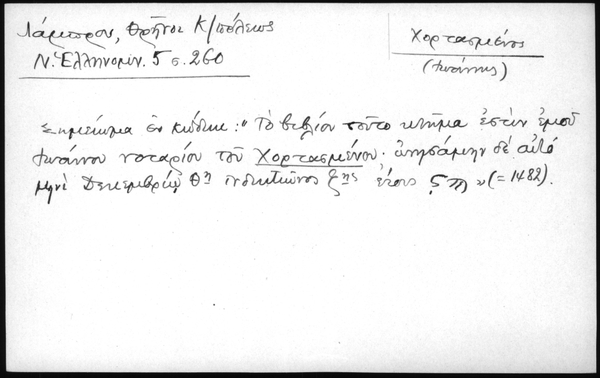 Λάμπρος, Θρῆνοι Κ/πόλεως
Ν. Ἑλληνομν. 5 σ. 260
Χορτασμένος
(Ἰωάννης)
Σημείωμα ἐν κώδικι: "Τὸ βιβλίον τοῦτο κτῆμα ἐστὶν ἐμοῦ
Ἰωάννου νοταρίου τοῦ Χορτασμένου· ὠνησάμην δέ αὐτό
μηνὶ Δεκεμβρίῳ θῃ ἰνδικτιῶνος ξης ἔτους ϛ π » (= 1482).